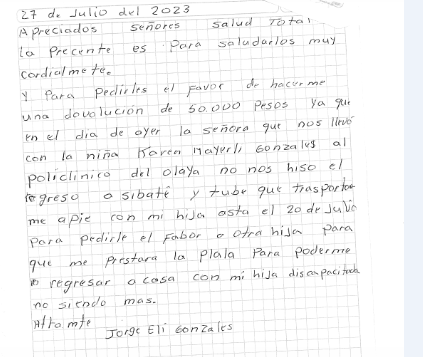 27 de Julio del 2023
Apreciados señores salud Total
la precente es para saludarlos muy
cordialmete.
y para pedirles el favor de hacerme
una devolución de 50.000 pesos ya que
en el dia de ayer la señora que nos llevó
con la niña Karen Mayerli Gonzales al
policlinico del olaya no nos hiso el
regreso a sibaté y tube que trasportar
me apie con mi hija asta el 20 de Julio
para pedirle el fabor a otra hija para
que me prestara la plata para poderme
regresar a casa con mi hija discapacitada
no siendo mas.
Att mte
Jorge Eli Gonzales